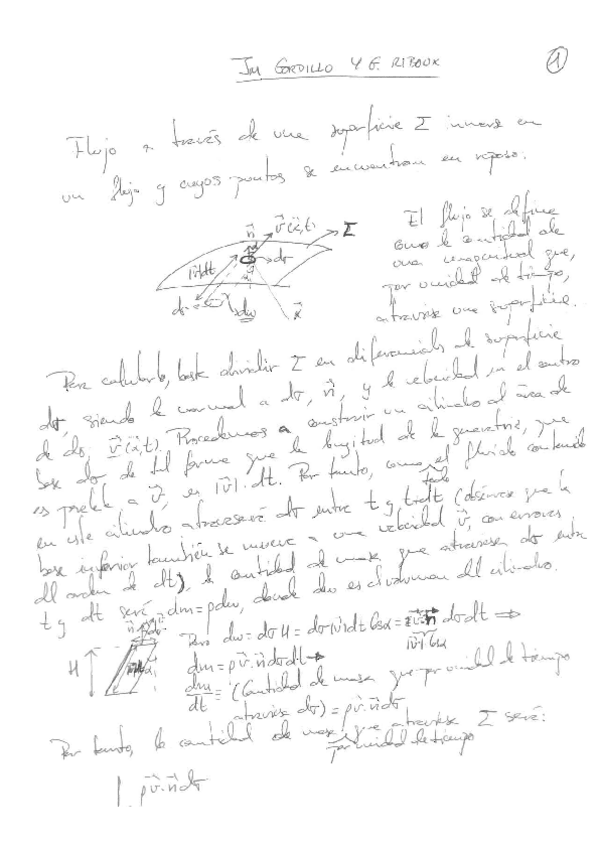 JM GORDILLO Y G. RIBOUX
1
Flujo a través de una superficie Σ inmersa en
un flujo y cuyos puntos se encuentran en reposo.
n⃗ v⃗(x⃗,t) Σ
dσ
|v⃗|dt
dω
x⃗
El flujo se define
como la cantidad de
una magnitud que,
por unidad de tiempo,
atraviesa una superficie.
Para calcularlo, basta dividir Σ en diferenciales de superficie
dσ, siendo la normal a dσ, n⃗, y la velocidad en el centro
de dσ, v⃗(x⃗,t). Procedemos a construir un cilindro de área de
base dσ de tal forma que la longitud de la generatriz, que
es paralela a v⃗, es |v⃗|·dt. Por tanto, como todo el fluido contenido
en este cilindro atravesará dσ entre t y t+dt (obsérvese que la
base inferior también se mueve a una velocidad v⃗, con errores
del orden de dt), la cantidad de masa que atraviesa dσ entre
t y dt será dm=ρdω, donde dω es el volumen del cilindro.
H
Pero dω = dσ H = dσ|v⃗|dt Cosα = v⃗·n⃗ dσdt ⇒
|v⃗|Cosα
dm = ρv⃗·n⃗dσdt →
dm/dt = (Cantidad de masa que por unidad de tiempo
atraviesa dσ) = ρv⃗·n⃗dσ
Por tanto, la cantidad de masa que atraviesa Σ será:
por unidad de tiempo
∫ ρv⃗·n⃗dσ